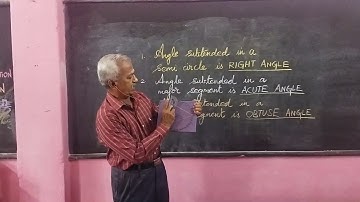 1. Angle subtended in a
semi circle is RIGHT ANGLE
2. Angle subtended in a
major segment is ACUTE ANGLE
in a
is OBTUSE ANGLE